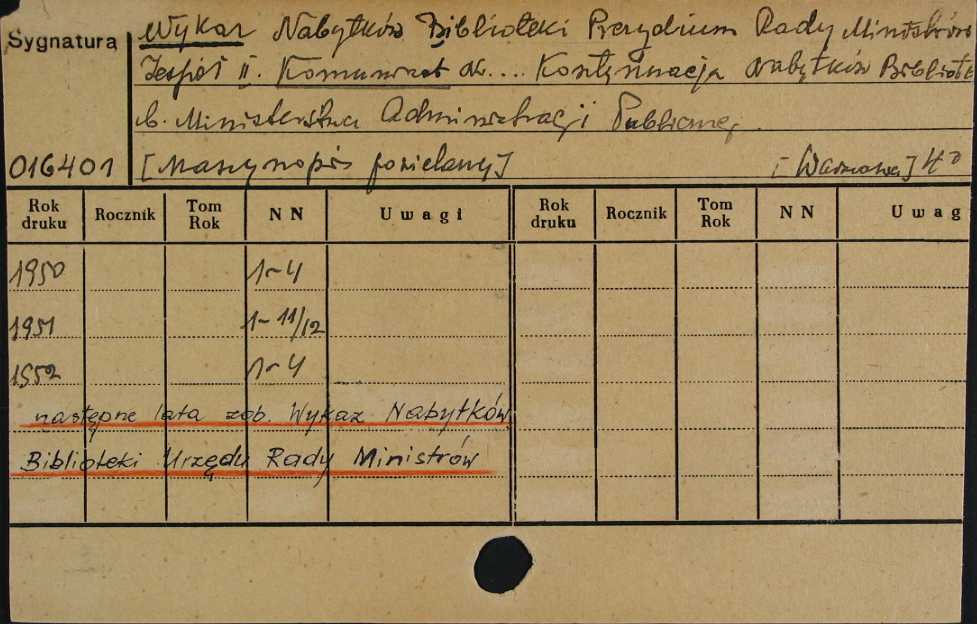 Sygnatura
Wykaz Nabytków Biblioteki Prezydium Rady Ministrów
Zespół II. Komunikat nr.... Kontynuacja nabytków Bibliotek
b. Ministerstwa Administracji Publicznej
016401 [Maszynopis powielany] [Warszawa] 4°
Rok druku Rocznik Tom Rok NN Uwagi Rok druku Rocznik Tom Rok NN Uwag
1950 1-4
1951 1-11/12
1952 1-4
następne lata zob. Wykaz Nabytków
Biblioteki Urzędu Rady Ministrów